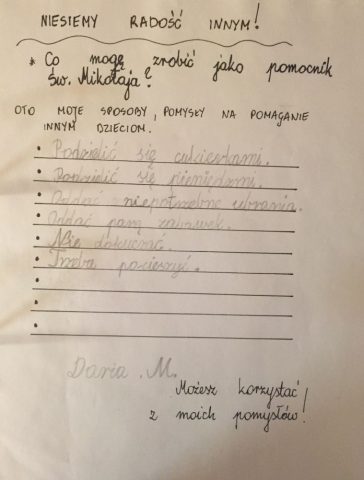 NIESIEMY RADOŚĆ INNYM!
* Co mogę zrobić jako pomocnik
św. Mikołaja?
OTO MOJE SPOSOBY, POMYSŁY NA POMAGANIE
INNYM DZIECIOM.
• Podzielić się cukierkami.
• Podzielić się pieniędzmi.
• Oddać niepotrzebne ubrania.
• Oddać parę zabawek.
• Nie dokuczać.
• Trzeba pocieszyć.
•
•
•
Daria M.
Możesz korzystać
z moich pomysłów!